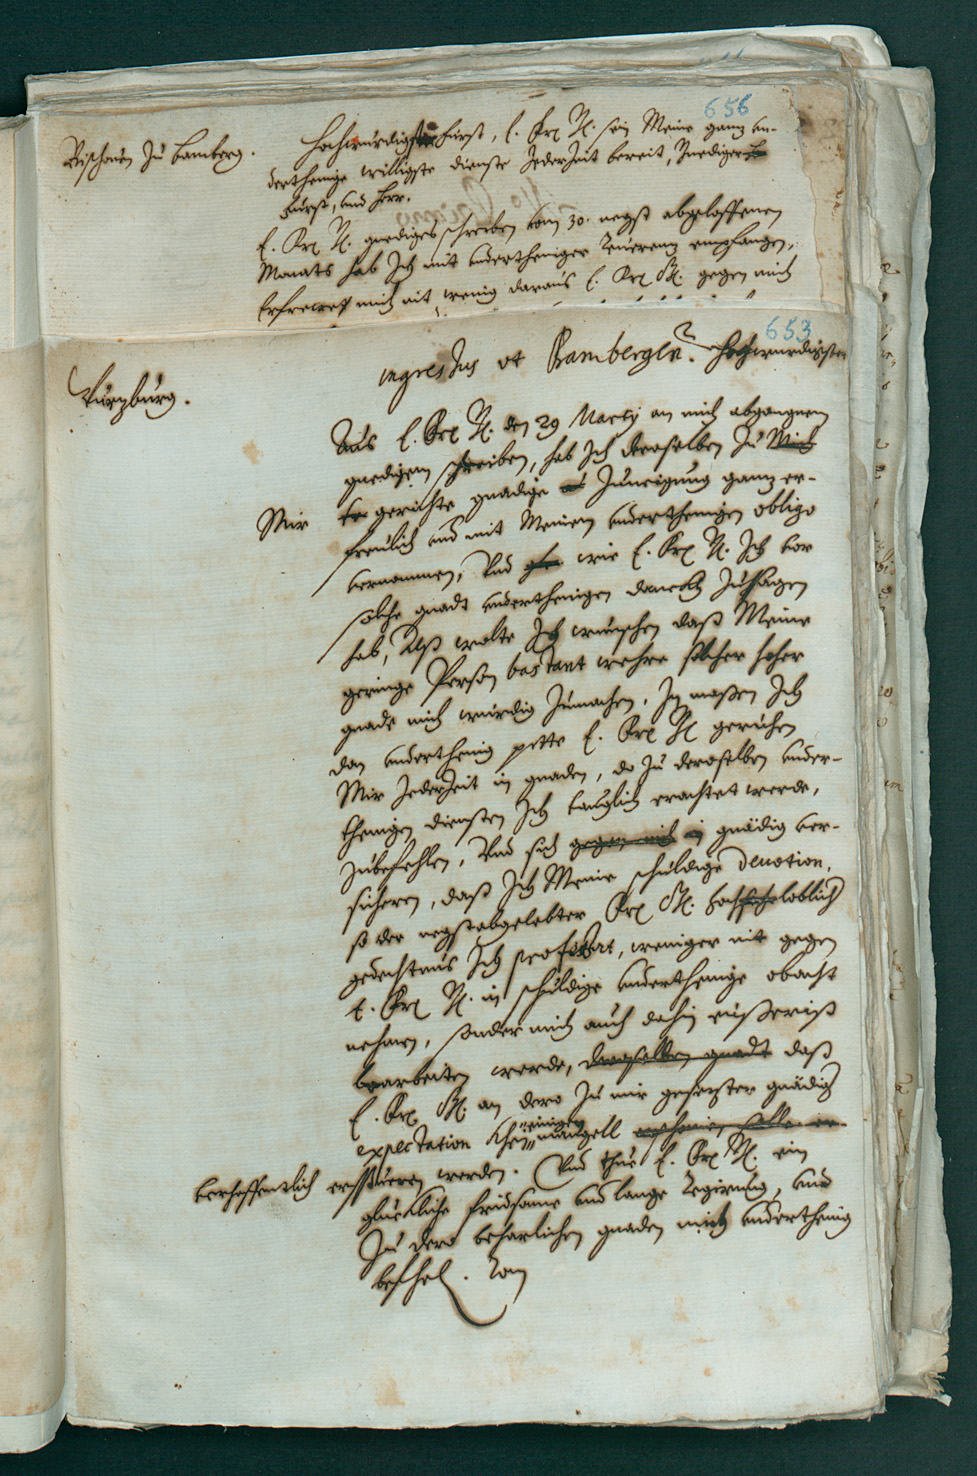 656
Bischoven zu Bamberg.
Hochwürdigster fürst, E. Frl. G. sein Meine ganz un-
derthenige willigste dienste Jederzeit bereit, Gnediger
Fürst, und Herr.
E. Frl. G. gnediges schreiben vom 30. negst abgeloffenen
Monats hab Ich mit undertheniger Reverenz empfangen,
Erfrewet mich nit wenig daraus E. Frl. G. gegen mich
653
ingressus ut Bambergen. Hochwürdigster
Würzburg.
Aus E. Frl. G. den 29 Martij an mich abgangnem
gnedigem schreiben, hab Ich deroselben zu Mich
Mir
gerichte gnädige Zuneigung ganz er-
freulich und mit Meinem underthenigen obligo
vernommen, Und wie E. Frl. G. Ich vor
solche gnadt underthenigen danckh Zusagen
hab, Alß wolte Ich wünschen daß Meine
geringe Person bastant wehre solcher hoher
gnade mich würdig Zumachen, In maßen Ich
dan underthenig pitte E. Frl. G. geruhen
Mir Jederzeit in gnaden, do zu deroselben under-
thenigen diensten Ich tauglich erachtet werde,
Zubefehlen, Und sich gegen mich gnädig ver-
sicheren, daß Ich Meine schuldige devotion,
so der negstabgelebter Frl. G. hochloblich
gedechtnus Ich profitirt, weniger nit gegen
E. Frl. G. in schuldige underthenige obacht
nehmen, sonder mich auch dahin eusserist
bearbeiten werde, deroselben gnadt daß
E. Frl. G. an dero zu mir gesetzter gnädig
expectation khein einigen mangell
verhoffentlich
werden. Und thue E. Frl. G. ein
glückliche fridsame und lange Regirung, und
Zu dero beharlichen gnaden mich underthenig
befhel.